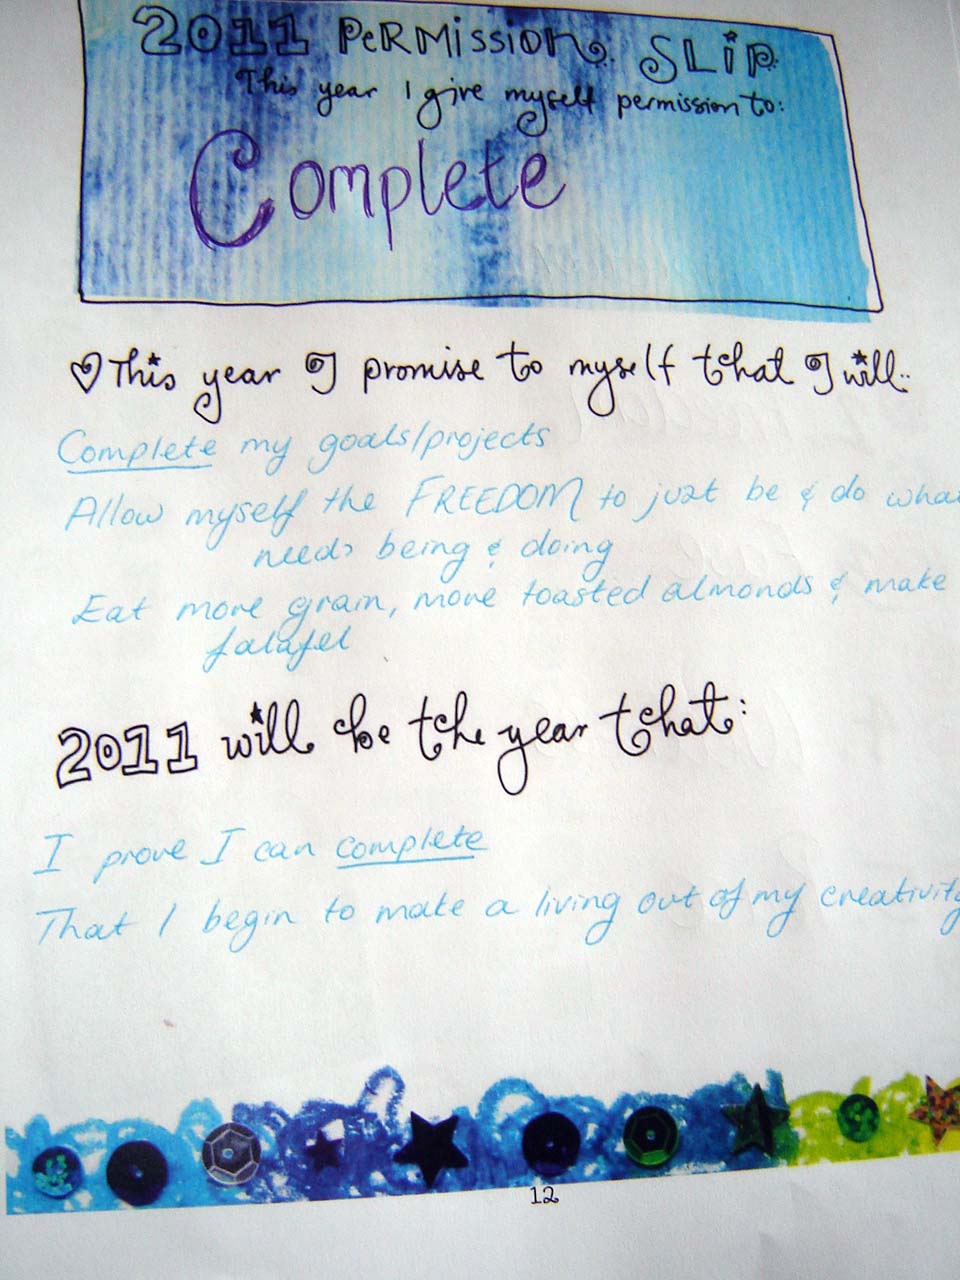 2011 PERMISSION SLIP
This year I give myself permission to:
Complete
This year I promise to myself that I will..
Complete my goals/projects
Allow myself the FREEDOM to just be & do wha
needs being & doing
Eat more grain, more toasted almonds & make
falafel
2011 will be the year that:
I prove I can complete
That I begin to make a living out of my creativity
12